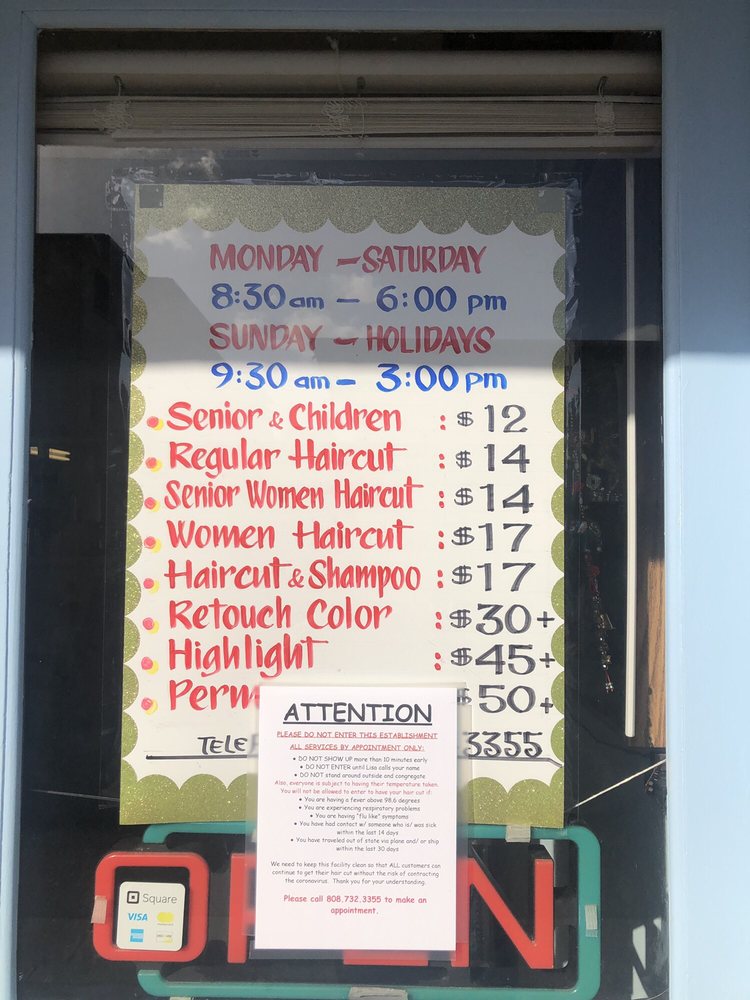 MONDAY - SATURDAY
8:30 am - 6:00 pm
SUNDAY - HOLIDAYS
9:30 am - 3:00 pm
Senior & Children : $12
Regular Haircut : $14
Senior Women Haircut : $14
Women Haircut : $17
Haircut & Shampoo : $17
Retouch Color : $30+
Highlight : $45+
Perm $50+
TELE 3355
ATTENTION
PLEASE DO NOT ENTER THIS ESTABLISHMENT
ALL SERVICES BY APPOINTMENT ONLY:
• DO NOT SHOW UP more than 10 minutes early
• DO NOT ENTER until Lisa calls your name
• DO NOT stand around outside and congregate
Also, everyone is subject to having their temperature taken.
You will not be allowed to enter to have your hair cut if:
• You are having a fever above 98.6 degrees
• You are experiencing respiratory problems
• You are having "flu like" symptoms
• You have had contact w/ someone who is/ was sick
within the last 14 days
• You have traveled out of state via plane and/ or ship
within the last 30 days
We need to keep this facility clean so that ALL customers can
continue to get their hair cut without the risk of contracting
the coronavirus. Thank you for your understanding.
Please call 808.732.3355 to make an
appointment.
OPEN
Square
VISA